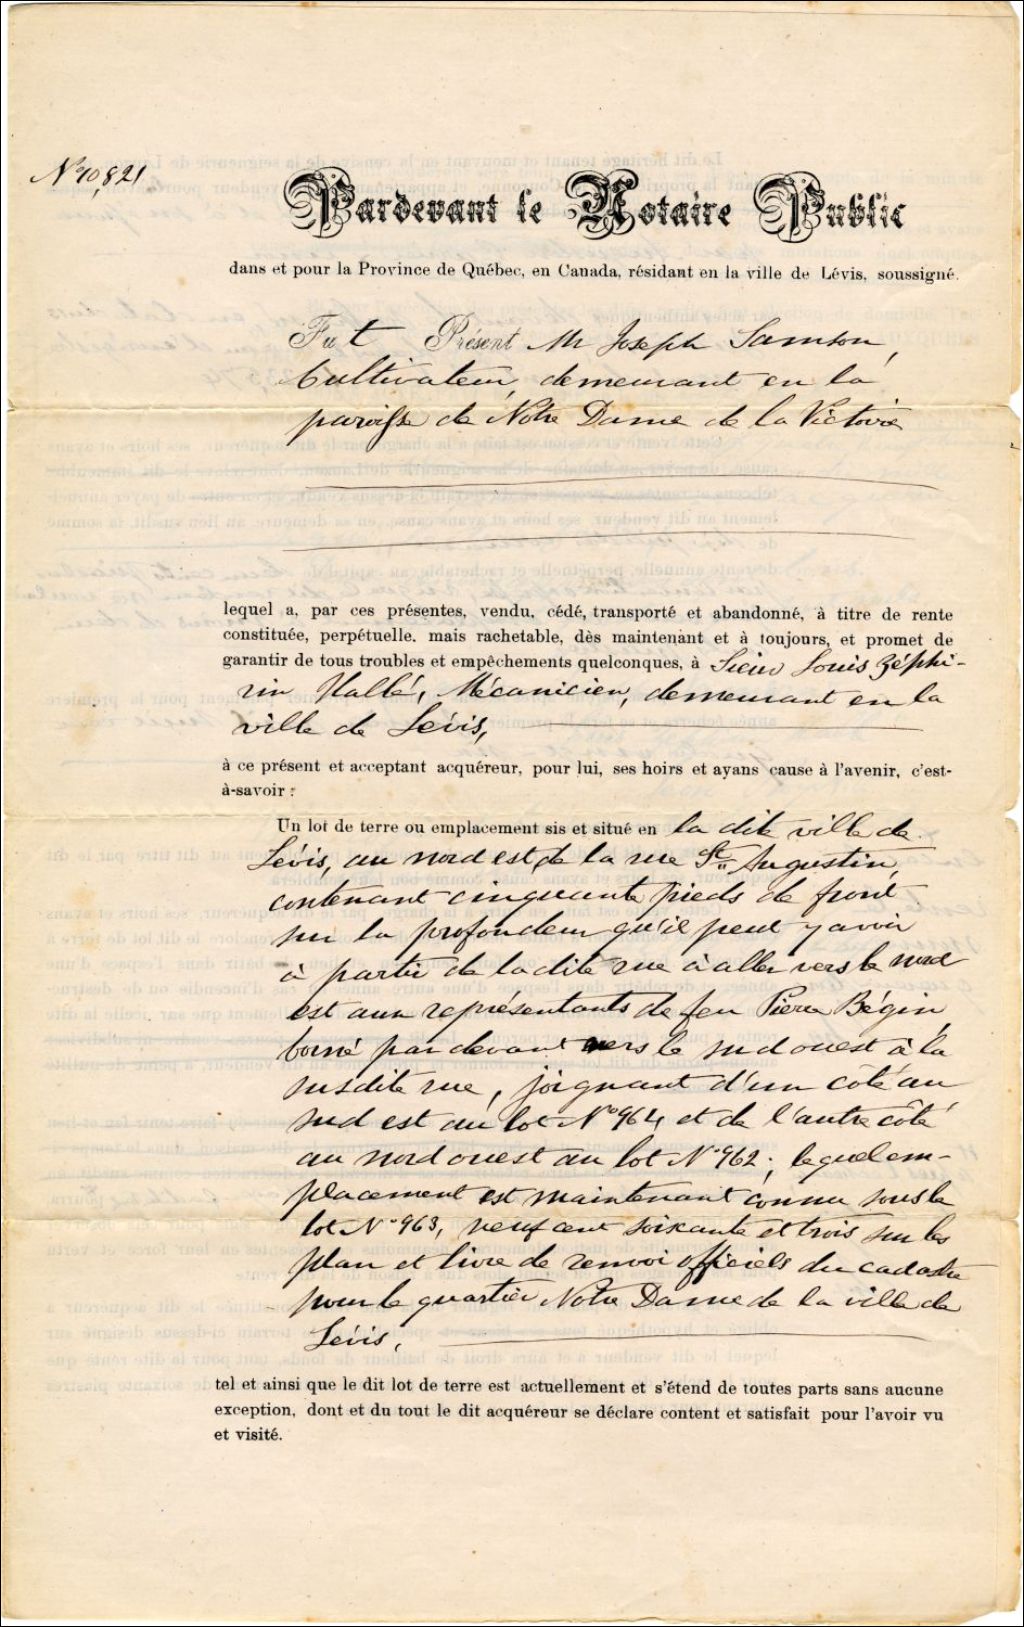 No 10,821
Pardevant le Notaire Public
dans et pour la Province de Québec, en Canada, résidant en la ville de Lévis, soussigné.
Fut Présent Mr Joseph Samson,
Cultivateur, demeurant en la
paroisse de Notre Dame de la Victoire
lequel a, par ces présentes, vendu, cédé, transporté et abandonné, à titre de rente
constituée, perpétuelle. mais rachetable, dès maintenant et à toujours, et promet de
garantir de tous troubles et empêchements quelconques, à Sieur Louis Zéphi-
rin Hallé, Mécanicien, demeurant en la
ville de Lévis,
à ce présent et acceptant acquéreur, pour lui, ses hoirs et ayans cause à l'avenir, c'est-
à-savoir :
Un lot de terre ou emplacement sis et situé en la dite ville de
Lévis, au nord est de la rue St Augustin,
contenant cinquante pieds de front
sur la profondeur qu'il peut y avoir
à partir de la dite rue à aller vers le nord
est aux représentants de feu Pierre Bégin,
borné par devant vers le sud ouest à la
susdite rue, joignant d'un côté au
sud est au lot No 964 et de l'autre côté
au nord ouest au lot No 962; lequel em-
placement est maintenant connu sous le
lot No 963, neuf cent soixante et trois sur les
plan et livre de renvoi officiels du cadastre
pour le quartier Notre Dame de la ville de
Lévis,
tel et ainsi que le dit lot de terre est actuellement et s'étend de toutes parts sans aucune
exception, dont et du tout le dit acquéreur se déclare content et satisfait pour l'avoir vu
et visité.